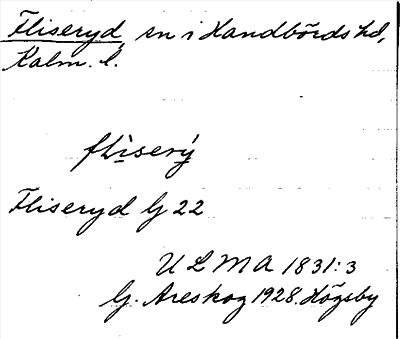 Fliseryd sn i Handbörds hd,
Kalm. l.
fliserý
Fliseryd G 22
ULMA 1831:3
G. Areskog 1928. Högsby